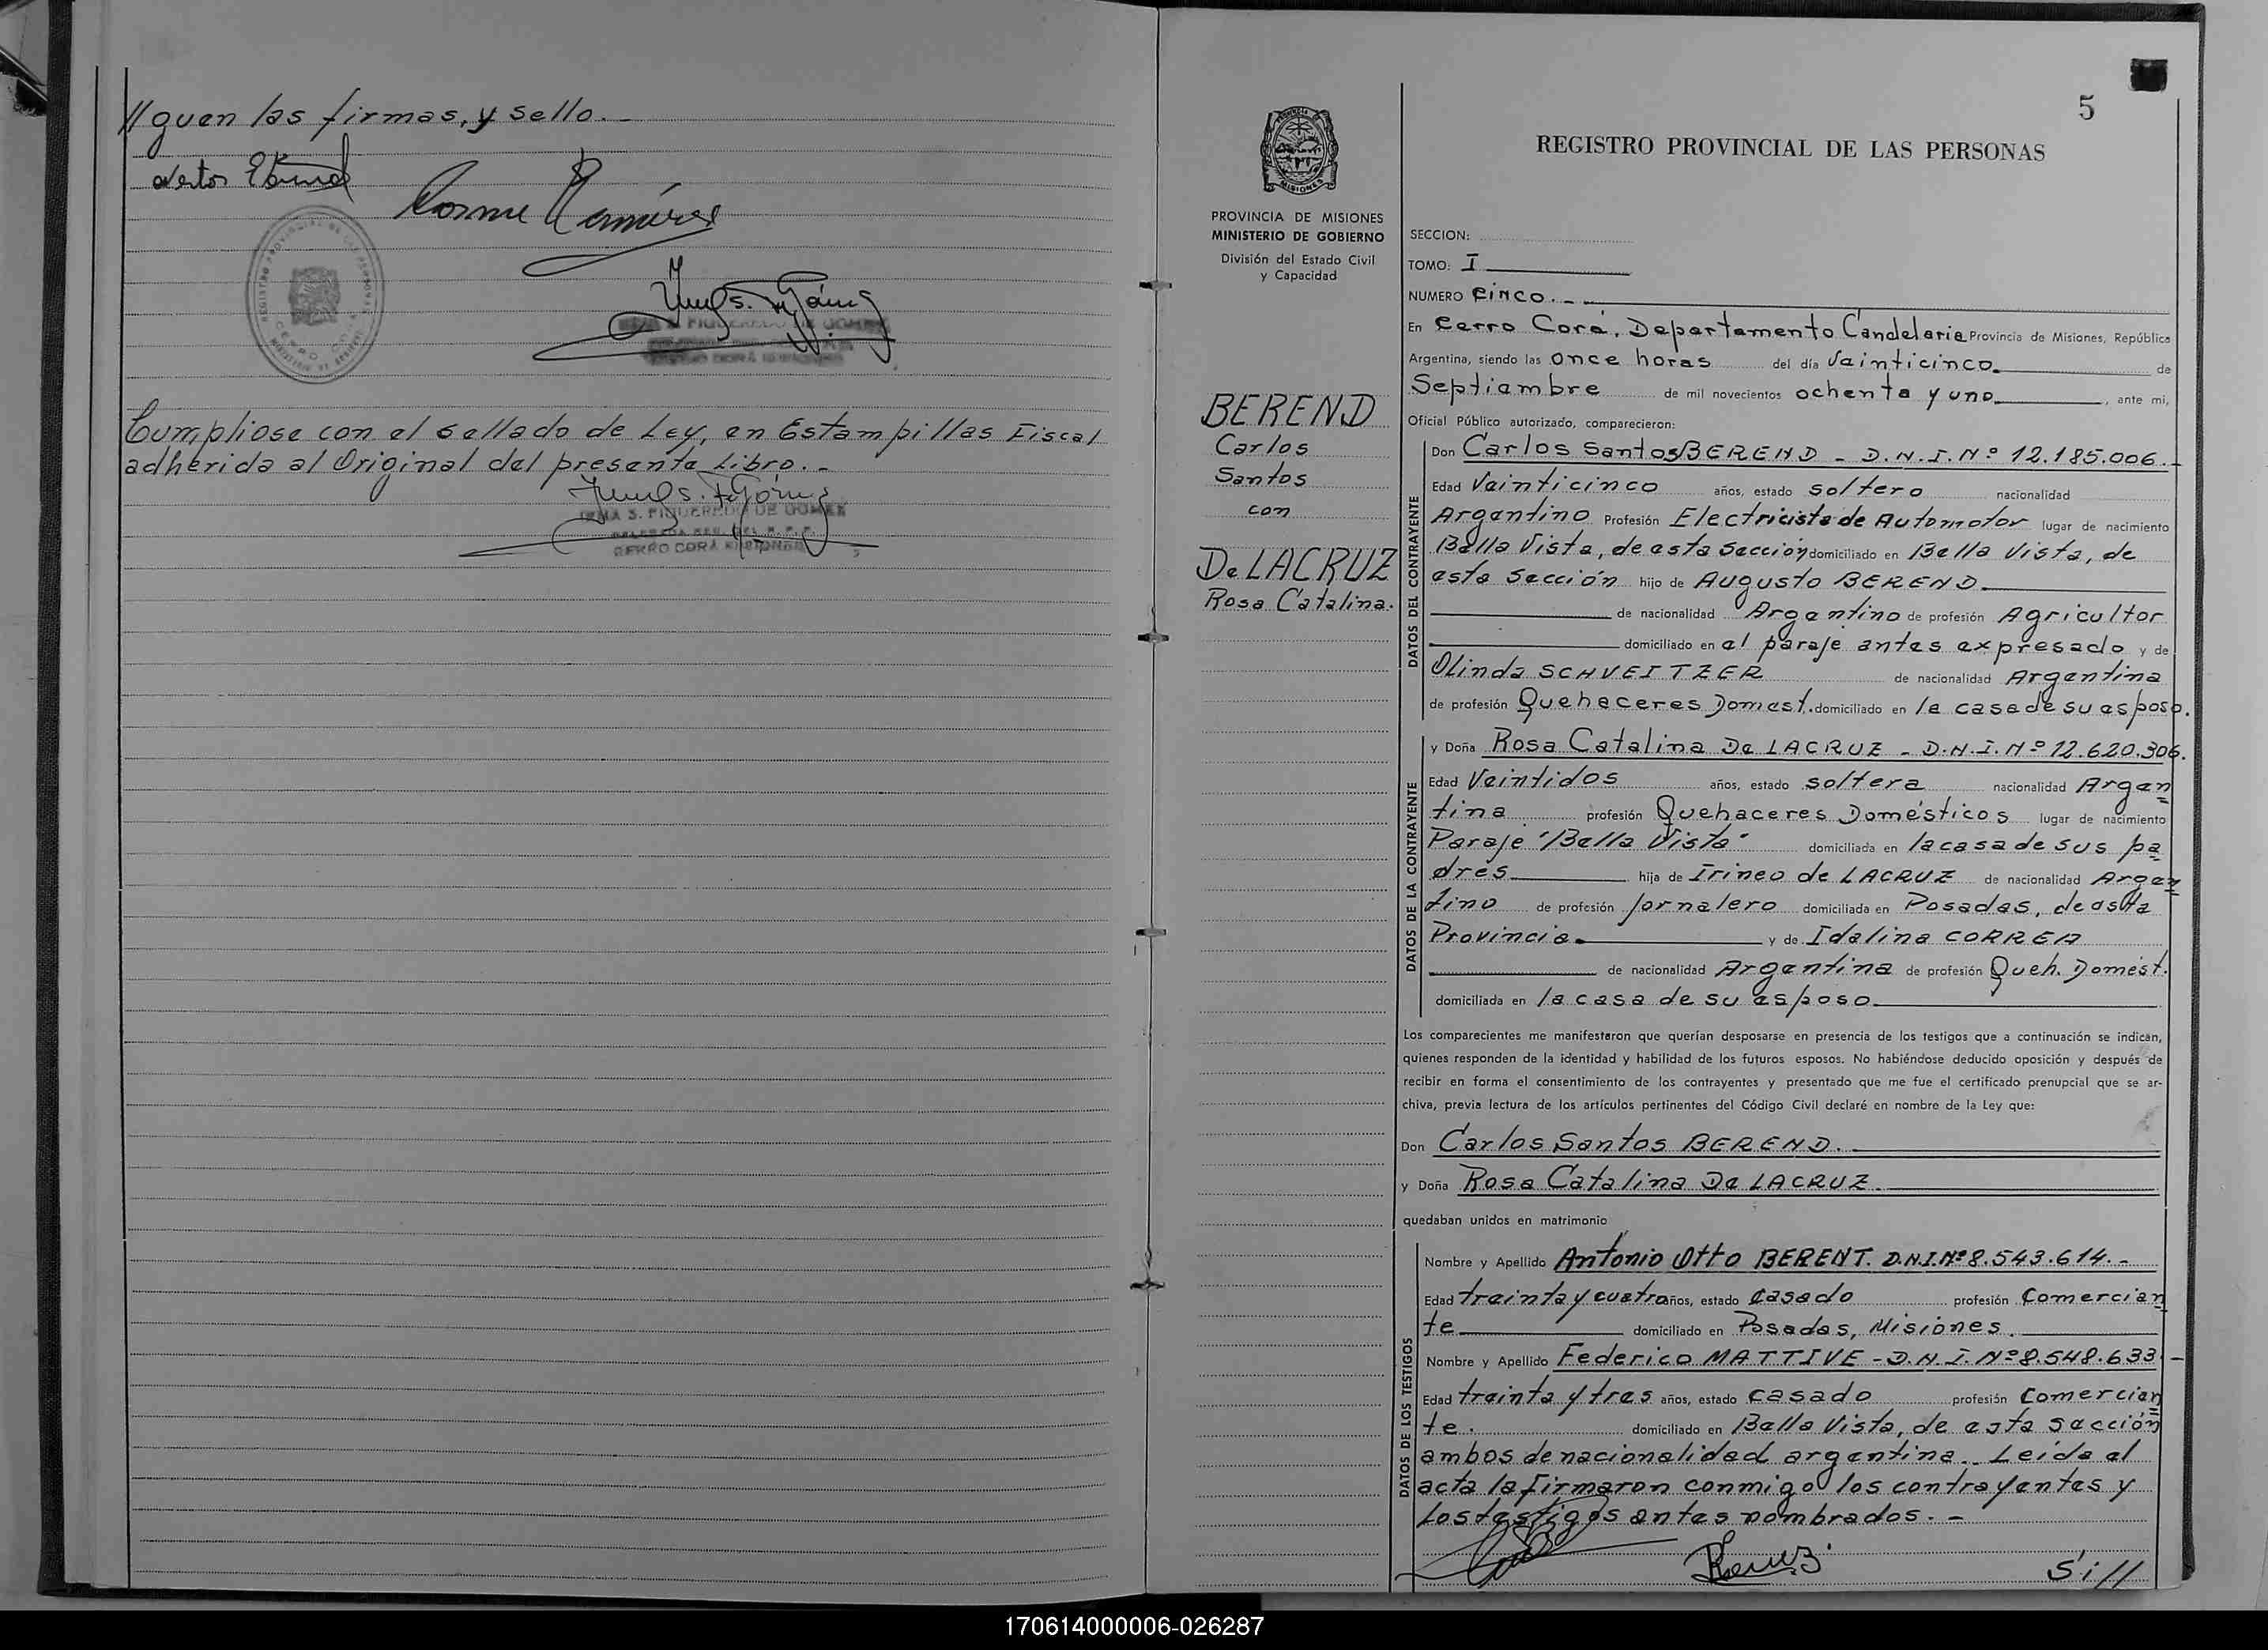 //guen las firmas, y sello.-
REGISTRO PROVINCIAL DE
IRMA S. FIGUEREDO DE GOMEZ
CERRO CORÁ MISIONES
Cumpliose con el sellado de Ley, en Estampillas Fiscal
adherida al Original del presente Libro.-
IRMA S. FIGUEREDO DE GOMEZ
CERRO CORÁ MISIONES
5
REGISTRO PROVINCIAL DE LAS PERSONAS
MISIONES
PROVINCIA DE MISIONES
MINISTERIO DE GOBIERNO
División del Estado Civil
y Capacidad
BEREND
Carlos
Santos
con
De LACRUZ
Rosa Catalina.
SECCION:
TOMO: I
NUMERO CINCO.-
En Cerro Corá, Departamento Candelaria Provincia de Misiones, República
Argentina, siendo las once horas del día Veinticinco de
Septiembre de mil novecientos ochenta y uno, ante mi,
Oficial Público autorizado, comparecieron:
DATOS DEL CONTRAYENTE
Don Carlos Santos BEREND - D.N.I.Nº 12.185.006.-
Edad Veinticinco años, estado soltero nacionalidad
Argentino Profesión Electricista de Automotor lugar de nacimiento
Bella Vista, de esta Sección domiciliado en Bella Vista, de
esta Sección hijo de Augusto BEREND
de nacionalidad Argentino de profesión Agricultor
domiciliado en el paraje antes expresado y de
Olinda SCHVEITZER de nacionalidad Argentina
de profesión Quehaceres Domest. domiciliado en la casa de su esposo.
DATOS DE LA CONTRAYENTE
y Doña Rosa Catalina De LACRUZ - D.N.I.Nº 12.620.306.
Edad Veintidos años, estado soltera nacionalidad Argen
tina profesión Quehaceres Domésticos lugar de nacimiento
Paraje "Bella Vista" domiciliada en la casa de sus pa
dres hija de Irineo de LACRUZ de nacionalidad Argen
tino de profesión Jornalero domiciliada en Posadas, de esta
Provincia. y de Idalina CORREA
de nacionalidad Argentina de profesión Queh. Domést.
domiciliada en la casa de su esposo.
Los comparecientes me manifestaron que querían desposarse en presencia de los testigos que a continuación se indican,
quienes responden de la identidad y habilidad de los futuros esposos. No habiéndose deducido oposición y después de
recibir en forma el consentimiento de los contrayentes y presentado que me fue el certificado prenupcial que se ar-
chiva, previa lectura de los artículos pertinentes del Código Civil declaré en nombre de la Ley que:
Don Carlos Santos BEREND.
y Doña Rosa Catalina De LACRUZ.
quedaban unidos en matrimonio
DATOS DE LOS TESTIGOS
Nombre y Apellido Antonio Otto BERENT. D.N.I.Nº 8.543.614.-
Edad treinta y cuatro años, estado casado profesión Comercian
te domiciliado en Posadas, Misiones.
Nombre y Apellido Federico MATTIVE - D.N.I.Nº 8.548.633.-
Edad treinta y tres años, estado casado profesión Comercian
te. domiciliado en Bella Vista, de esta sección
ambos de nacionalidad argentina. Leída el
acta la firmaron conmigo los contrayentes y
Los testigos antes nombrados.-
Si//
170614000006-026287